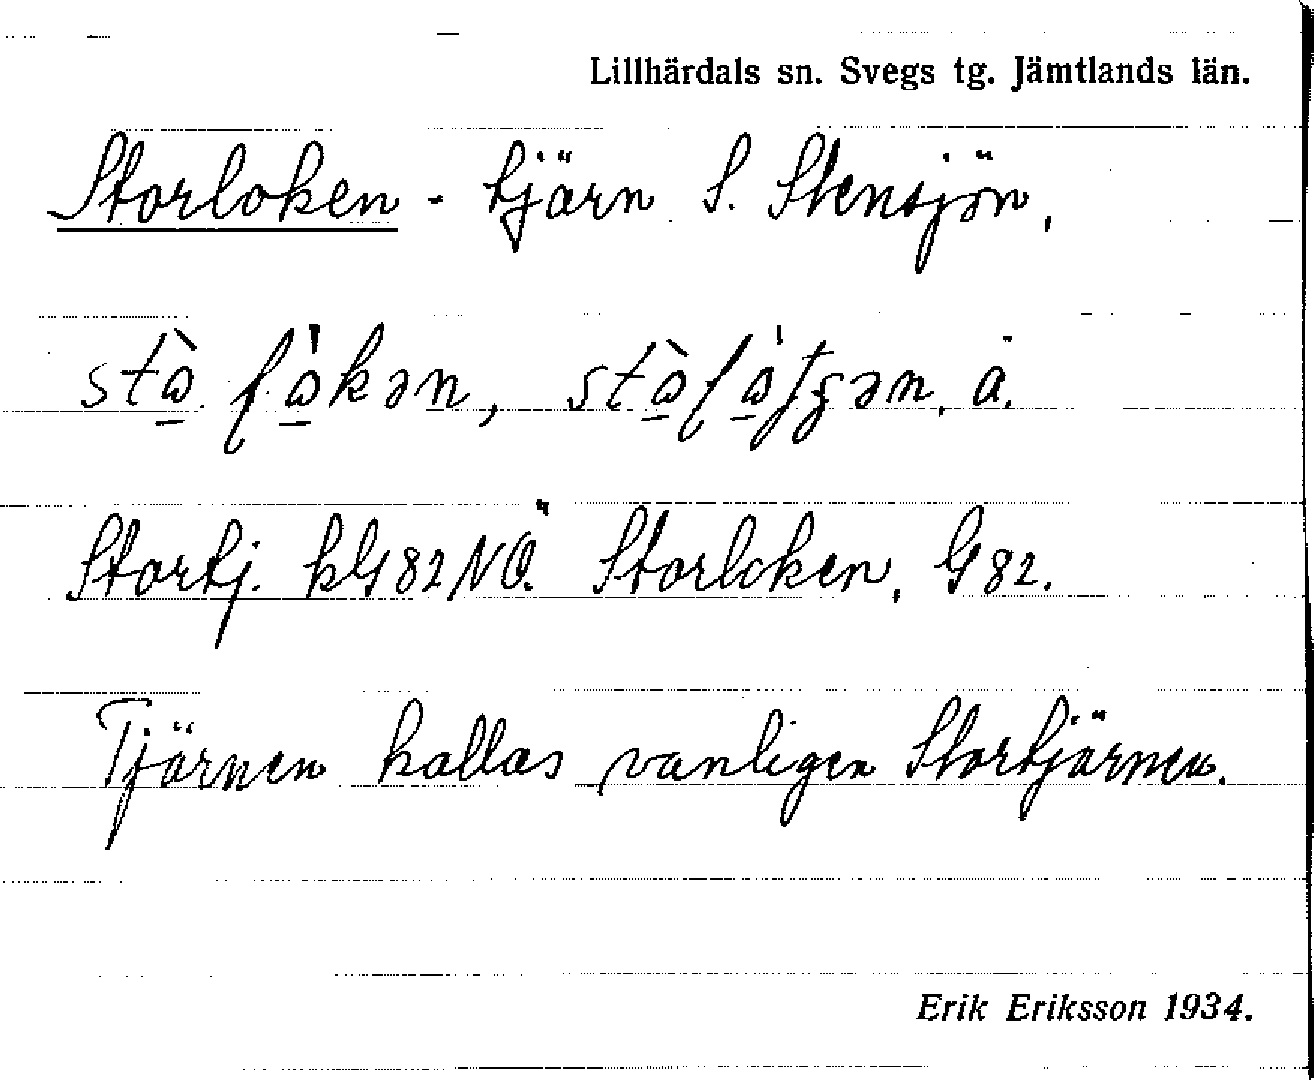 Lillhärdals sn. Svegs tg. Jämtlands län.
Storloken - tjärn S. Stensjön,
Stortj. kG82NÖ. Storloken, G82.
Tjärnen kallas vanligen Stortjärnen.
Erik Eriksson 1934.